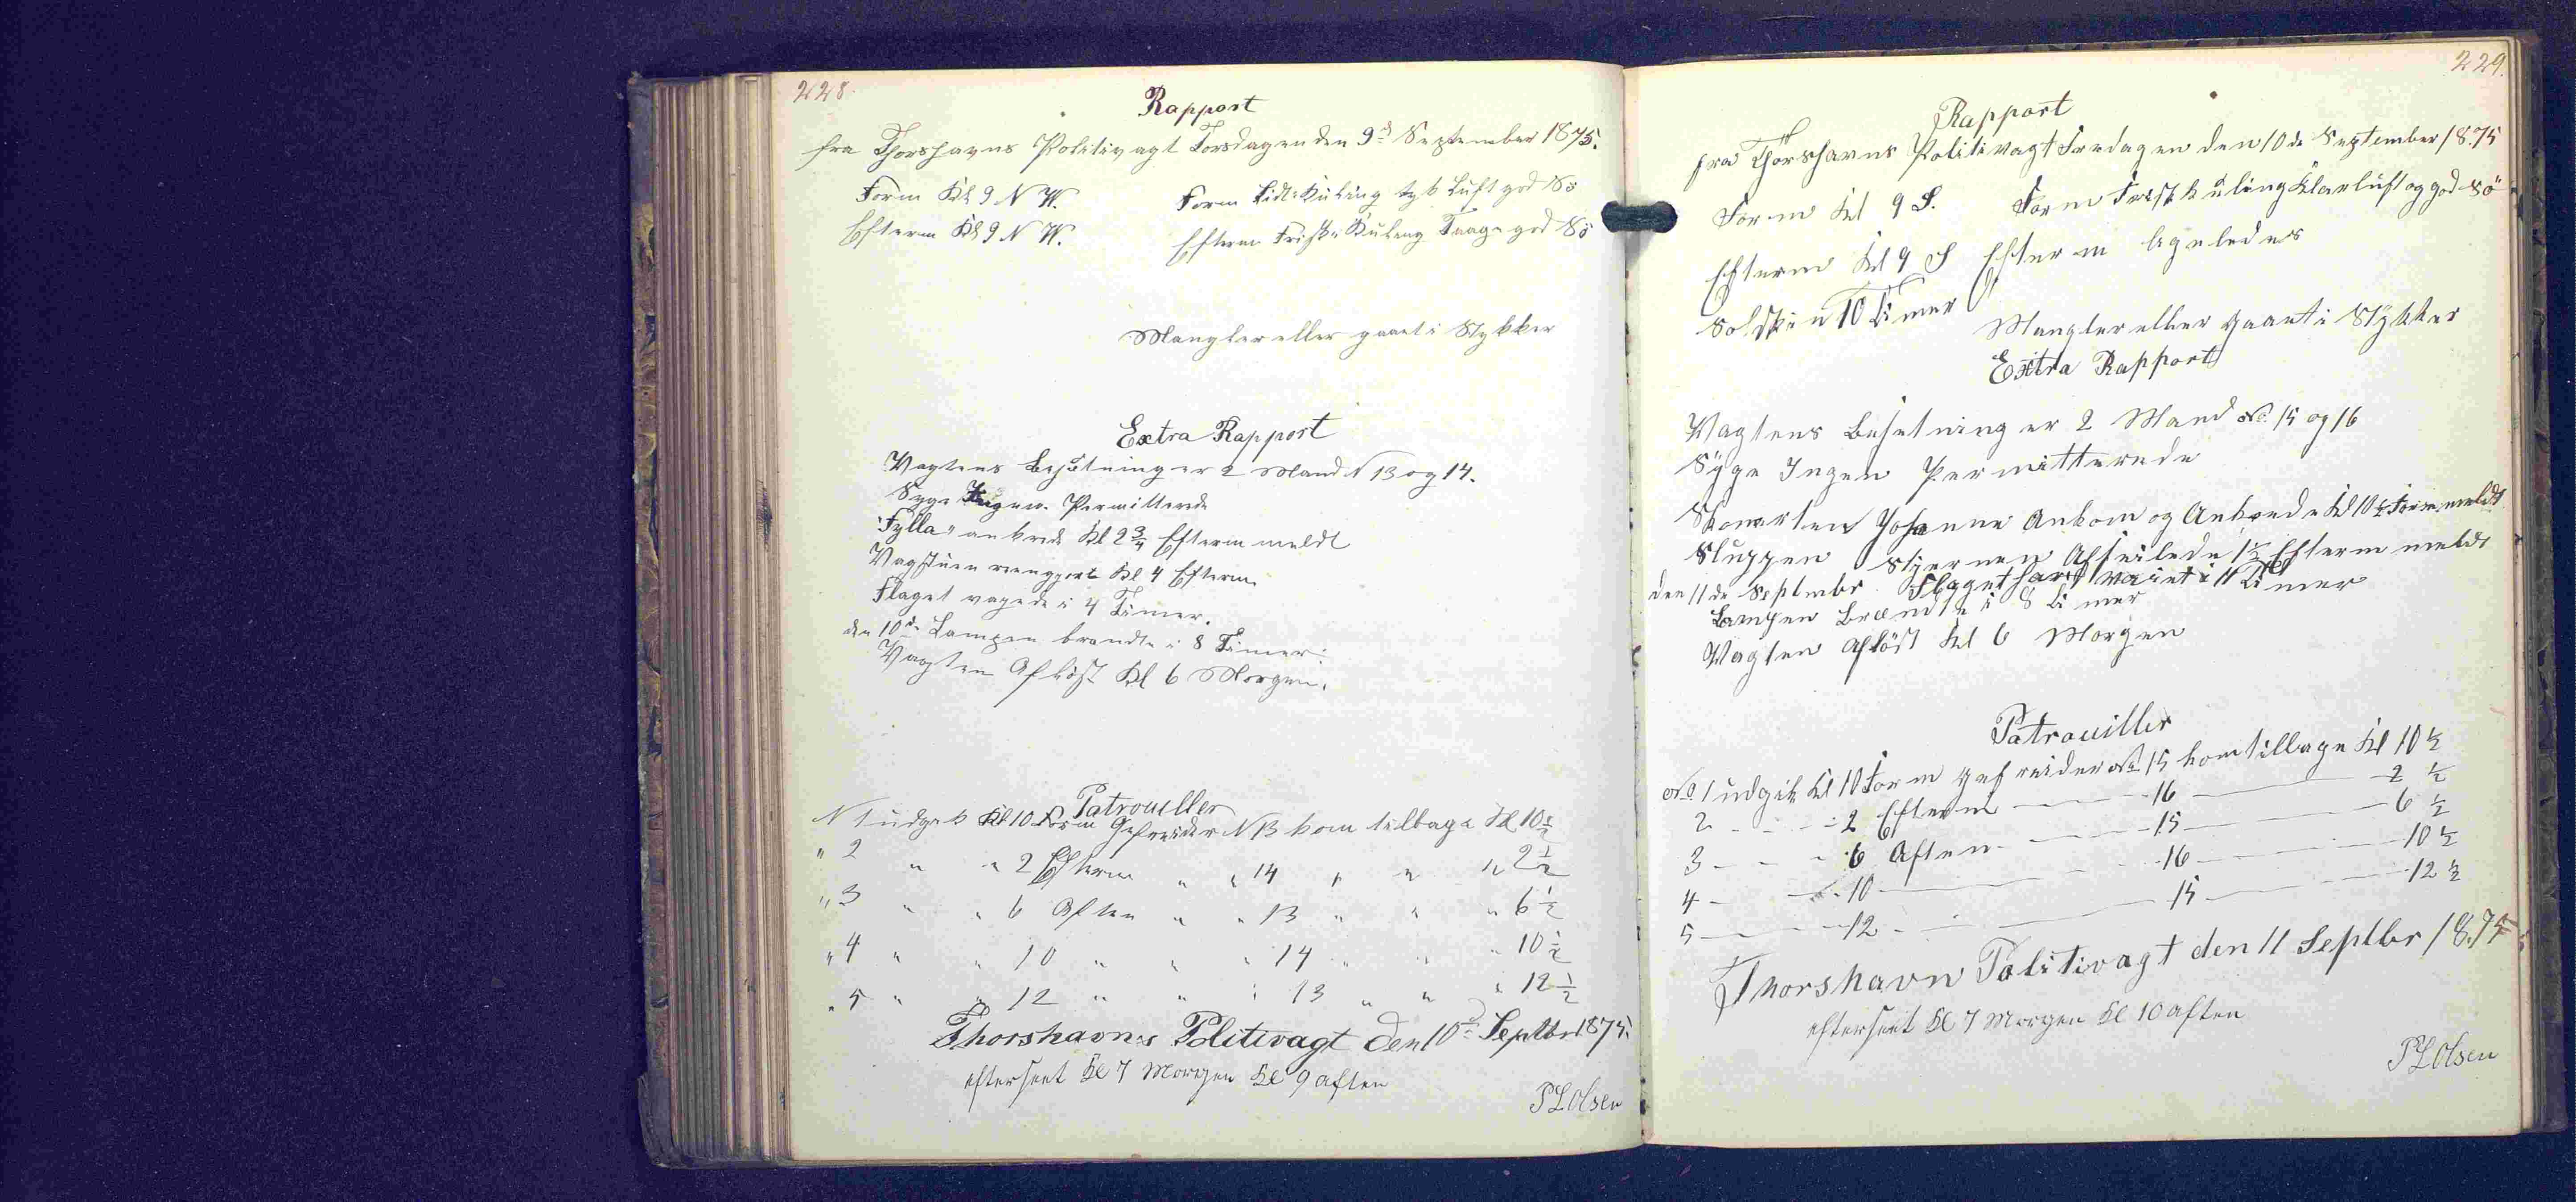 228.
Rapport
fra Thorshavns Politivagt Torsdagen den 9de September 1875.
Form Kl 9 N W.
Form Lidt Kuling tyk Luft god Sö
Efterm Kl 9 N W.
Efterm Friske Kuling Taage god Sö
Mangler eller gaaet i Stykker
Extra Rapport
Vagtens Besætning er 2 Mand N 13 og 14.
Syge Ingen. Permitterede
"Fylla" ankrede Kl 2 3/4 Efterm meldt
Vagstuen reengjort Kl 4 Efterm.
Flaget vayede i 4 Timer.
den 10de Lampen brændte i 8 Timer.
Vagten Aflöst Kl 6 Morgen.
Patrouiller
N 1 udgik Kl 10 Form Gefreider N 13 kom tilbage Kl 10 1/2
" 2 " " 2 Efterm " " 14 " " " 2 1/2
" 3 " " 6 Aften " " 13 " " " 6 1/2
" 4 " " 10 " " " 14 " " " 10 1/2
" 5 " " 12 " " " 13 " " " 12 1/2
Thorshavns Politivagt den 10de Septbr 1875.
efterseet Kl 7 Morgen Kl 9 aften
P L Olsen
229.
Rapport
fra Thorshavns Politivagt Fredagen den 10de September 1875
Form Kl 9 S. Form Frisk kuling Klar luft og god Sö
Efterm Kl 9 S Efterm ligeledes
Solskin 10 Timer
Mangler eller gaaet i Stykker
Extra Rapport
Vagtens Besetning er 2 Mand No 15 og 16
Syge Ingen Permitterede
Skonerten Johanne Ankom og Ankrede Kl 10 1/2 Form meldt
Sluppen Stjernen Afseilede 1 1/2 Efterm meldt
den 11de Septmbr. Flaget har vaiet i 11 Timer
Lampen Brændte i 8 Timer
Vagten Aflöst Kl 6 Morgen
Patrouiller
No 1 udgik Kl 10 Form gefreider No 15 kom tilbage Kl 10 1/2
2 - - - 2 Efterm - - - 16 - - - 2 1/2
3 - - - 6 Aften - - - 15 - - - 6 1/2
4 - - - 10 - - - 16 - - - 10 1/2
5 - - - 12 - - - 15 - - - 12 1/2
Thorshavn Politivagt den 11 Septbr 1875
efterseet Kl 7 Morgen Kl 10 aften
P L Olsen